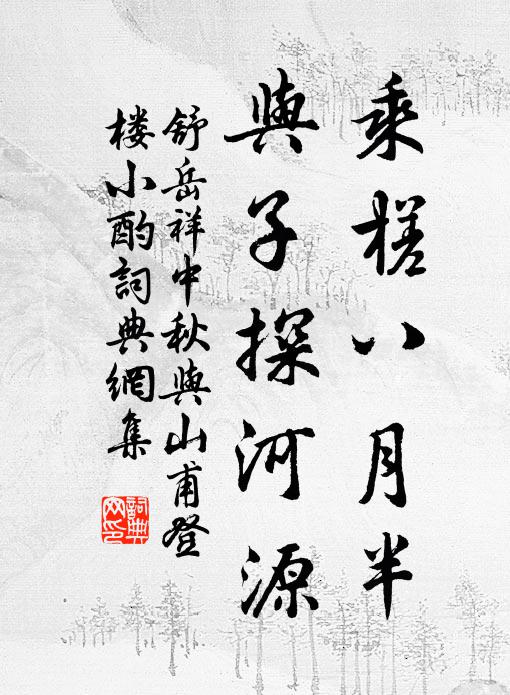 乘槎八月半
與子探河源
舒岳祥中秋與山甫登
楼小酌詞典網集